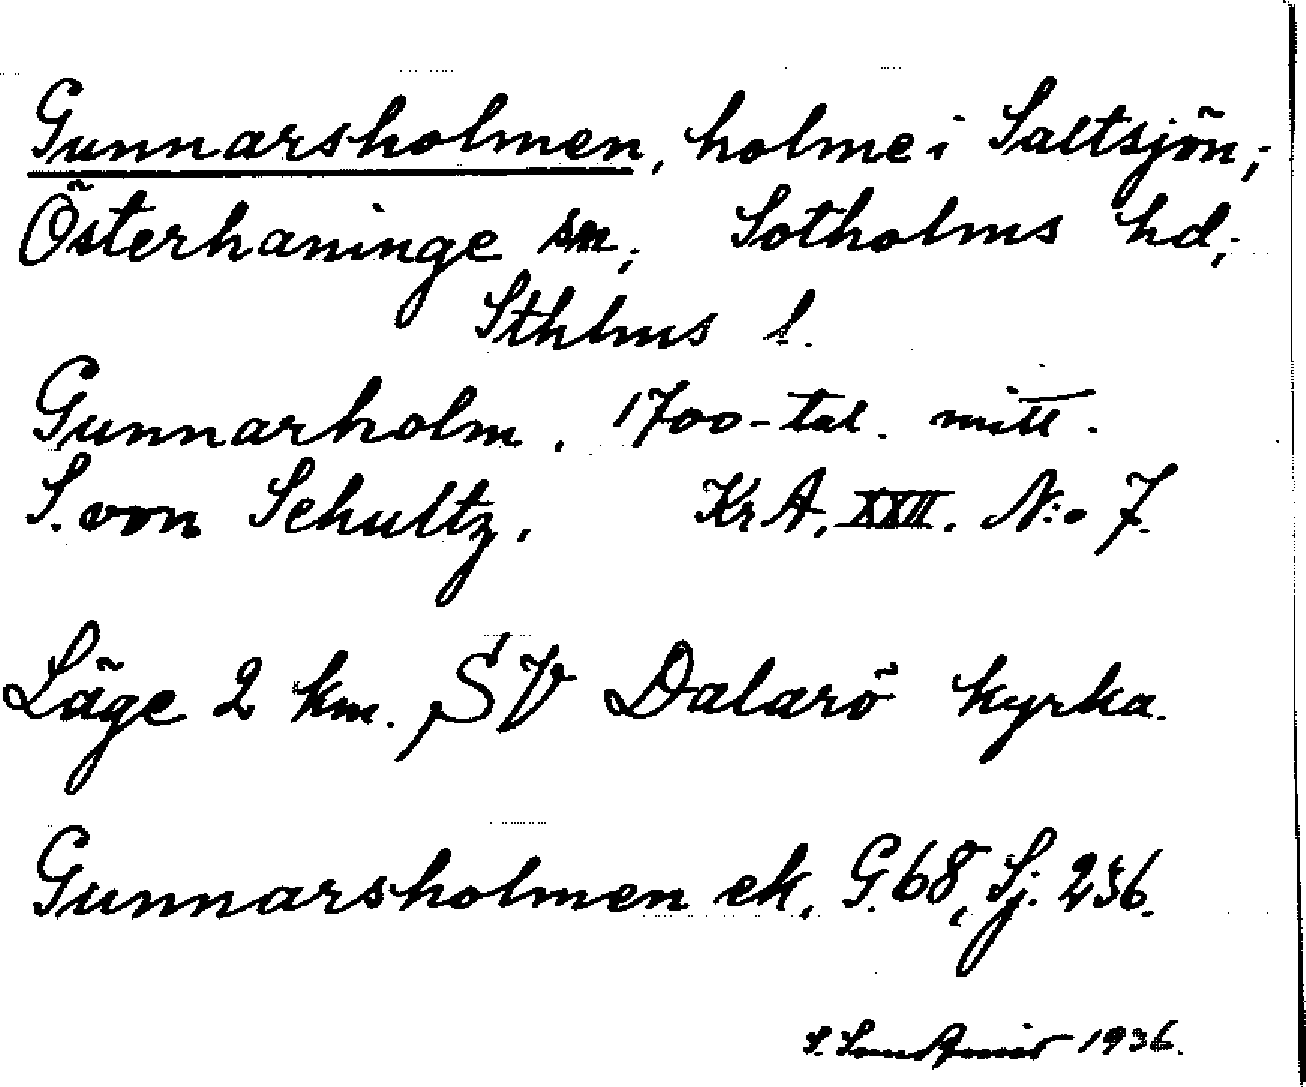 Gunnarsholmen, holme i Saltsjön,
Österhaninge sn, Sotholms hd,
Sthlms l.
Gunnarholm. 1700-tal. mitt.
S. von Schultz. Kr A. XXII. N:o 7.
Läge 2 km. SV Dalarö kyrka.
Gunnarsholmen ek. G. 68, Sj. 236.
S. 1936.